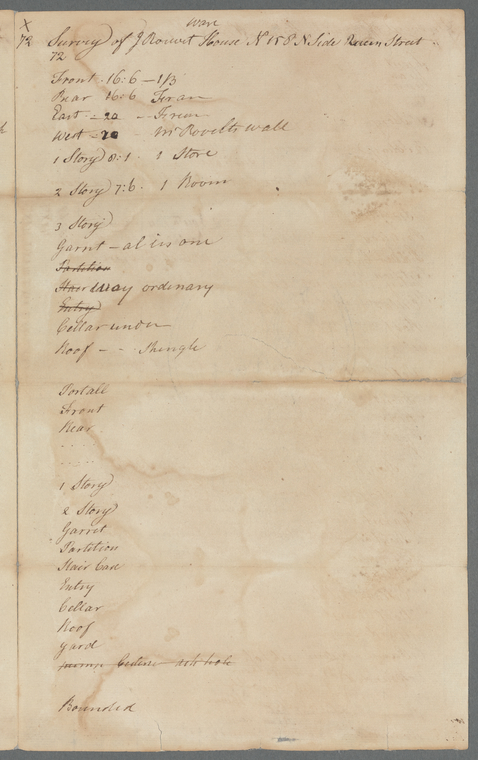 x Ware
72 Survey of J Roovet House No 158 N Side Queen Street
72
Front 16:6 – 1/3
Rear 16:6
East – 20
West – 20 Mr Rovelts wall
1 Story 8:1 1 Store
2 Story 7:6 1 Room
3 Story
Garrt – al in one
Partition
Stair way ordinary
Entry
Cellar under
Roof – – Shingle
Portall
Front
Rear
1 Story
2 Story
Garret
Partition
Stair Case
Entry
Cellar
Roof
Yard
pump Cestern ash hole
Bounded